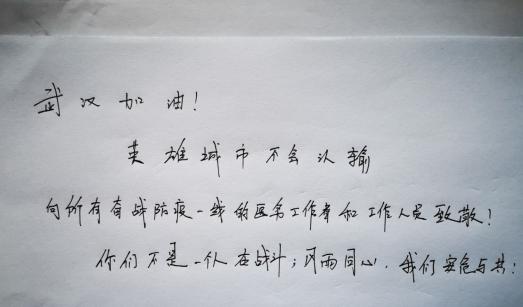 武汉加油!
英雄城市不会认输
向所有奋战防疫一线的医务工作者和工作人员致敬!
你们不是一个人在战斗;风雨同心,我们安危与共!